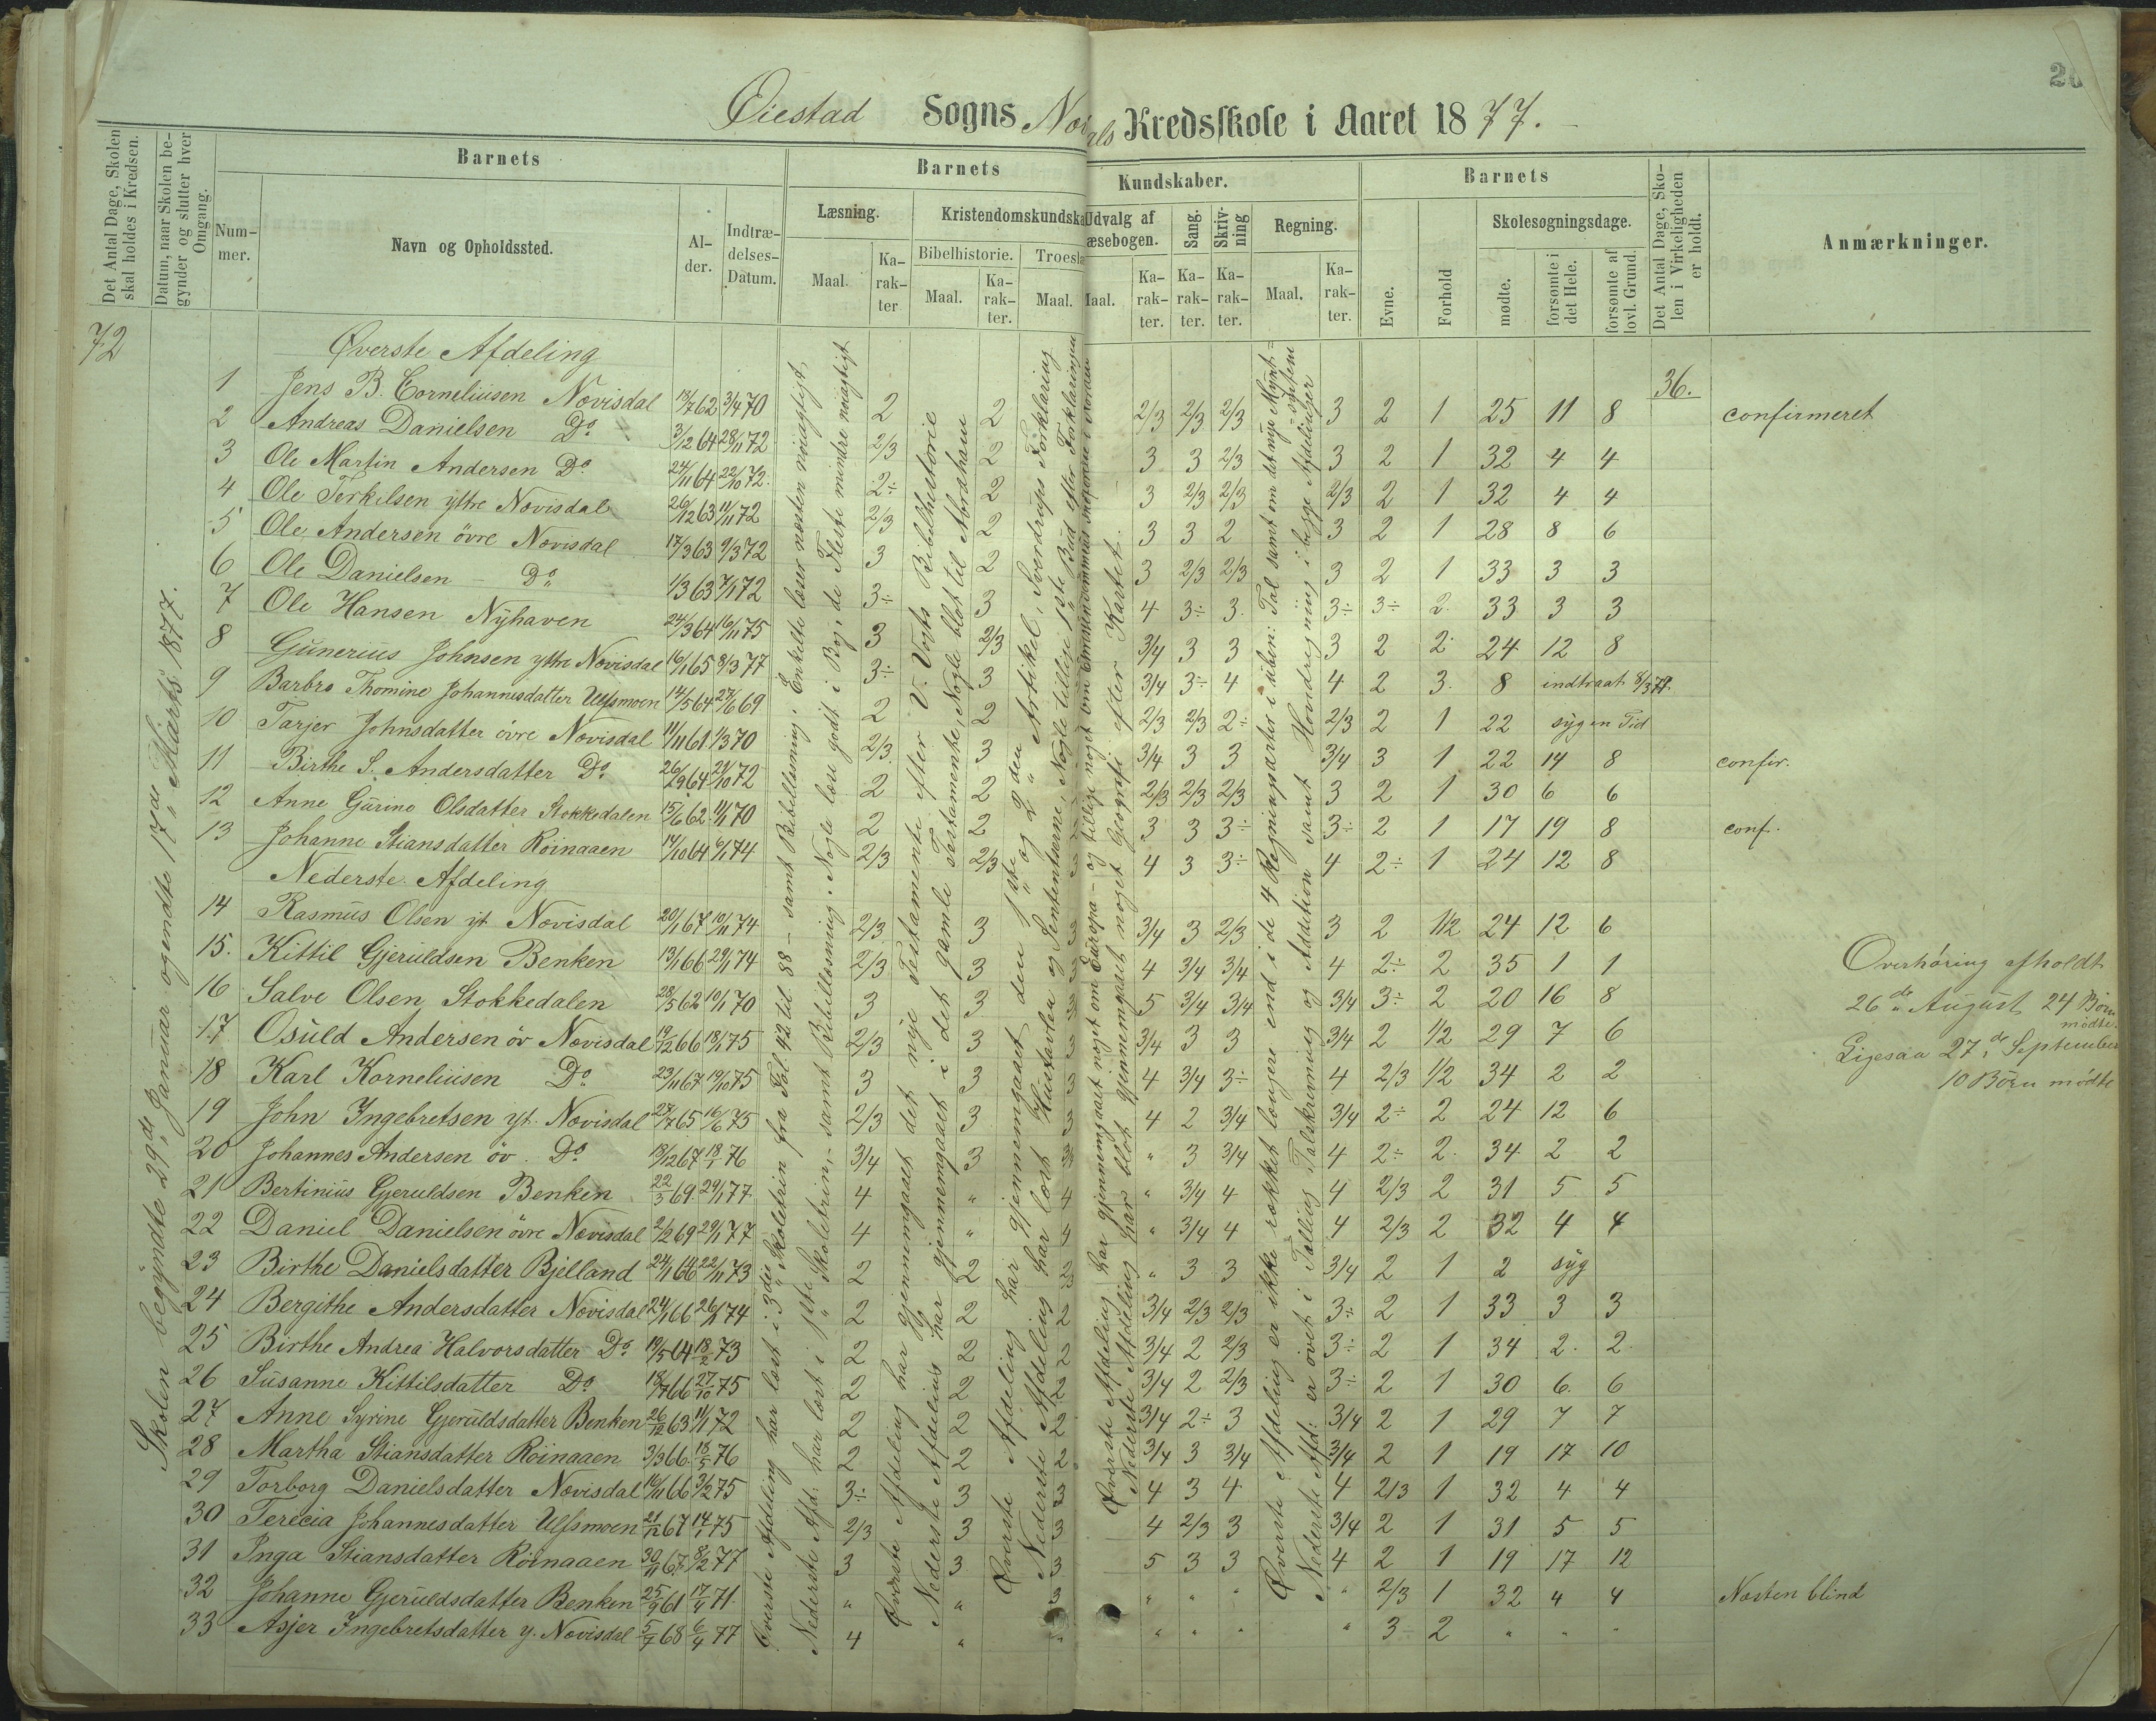 Øiestad Sogns Nævisdals Kredsskole i Aaret 1877.
Det Antal Dage, Skolen skal holdes i Kredsen.
Datum, naar Skolen begynder og slutter hver Omgang.
Barnets
Nummer.
Navn og Opholdssted.
Alder.
Indtrædelses-Datum.
Barnets Kundskaber.
Læsning.
Maal.
Karakter
Kristendomskundska
Bibelhistorie.
Maal.
Karakter.
Troeslæ
Maal.
Udvalg af
æsebogen.
Maal.
Karakter.
Sang.
Karakter.
Skrivning
Karakter.
Regning.
Maal.
Karakter.
Barnets
Evne.
Forhold
Skolesøgningsdage.
mødte.
forsømte i det Hele.
forsømte af lovl. Grund.
Det Antal Dage, Skolen i Virkeligheden er holdt.
Anmærkninger.
72
Skolen begyndte 29de Januar og endte 17de Marts 1877.
36.
Øverste Afdeling
1 Jens B. Corneliusen Nævisdal 13/7 62 3/4 70 2 2 2/3 2/3 2/3 3 2 1 25 11 8 confirmeret
2 Andreas Danielsen Do 3/12 64 28/11 72 2/3 2 3 3 2/3 3 2 1 32 4 4
3 Ole Martin Andersen Do 24/11 64 22/10 72 2÷ 2 3 2/3 2/3 2/3 2 1 32 4 4
4 Ole Terkilsen ytre Nævisdal 26/12 63 11/11 72 2/3 2 3 3 2 3 2 1 28 8 6
5 Ole Andersen övre Nævisdal 17/3 63 9/3 72 3 2 3 2/3 2/3 3 2 1 33 3 3
6 Ole Danielsen Do 1/3 63 7/1 72 3÷ 3 4 3÷ 3 3÷ 3÷ 2 33 3 3
7 Ole Hansen Nyhaven 24/3 64 16/11 75 3 2/3 3/4 3 3 3 2 2 24 12 8
8 Gunerius Johnsen ytre Nævisdal 16/1 65 8/3 77 3÷ 3 3/4 3÷ 4 4 2 3 8 indtraat 8/3 77.
9 Barbro Thomine Johannesdatter Ulfsmoen 14/5 64 27/6 69 2 2 2/3 2/3 2÷ 2/3 2 1 22 syg en Tid
10 Tarjer Johnsdatter övre Nævisdal 11/11 61 1/3 70 2/3 3 3/4 3 3 3/4 3 1 22 14 8 confir.
11 Birthe S. Andersdatter Do 26/9 64 21/10 72 2 2 2/3 2/3 2/3 3 2 1 30 6 6
12 Anne Gurine Olsdatter Stokkedalen 15/6 62 11/1 70 2 2 3 3 3÷ 3÷ 2 1 17 19 8 conf.
13 Johanne Stiansdatter Röinaaen 14/10 64 6/1 74 2/3 2/3 4 3 3÷ 4 2÷ 1 24 12 8
Nederste Afdeling
14 Rasmus Olsen yt Nævisdal 20/1 67 10/11 74 2/3 3 3 3/4 3 2/3 3 2 1/2 24 12 6
15. Kittil Gjeruldsen Benken 13/1 66 29/1 74 2/3 3 3 4 3/4 3/4 4 2÷ 2 35 1 1
16 Salve Olsen Stokkedalen 28/5 62 10/1 70 3 3 3 5 3/4 3/4 3/4 3÷ 2 20 16 8
17 Osuld Andersen öv Nævisdal 19/12 66 18/1 75 2/3 3 3 3/4 3 3 3/4 2 1/2 29 7 6
18 Karl Korneliusen Do 23/11 67 19/10 75 3 3 3 4 3/4 3÷ 4 2/3 1/2 34 2 2
19 John Ingebretsen yt. Nævisdal 27/7 65 16/6 75 2/3 3 3 4 2 3/4 3/4 2÷ 2 24 12 6
20 Johannes Andersen öv. Do 13/12 67 18/1 76 3/4 3 3 " 3 3/4 4 2÷ 2 34 2 2
21 Bertinius Gjeruldsen Benken 22/3 69 29/1 77 4 " 4 " 3/4 4 4 2/3 2 31 5 5
22 Daniel Danielsen övre Nævisdal 2/2 69 29/1 77 4 " 4 " 3/4 4 4 2/3 2 32 4 4
23 Birthe Danielsdatter Bjelland 24/1 66 22/11 73 2 2 2 " 3 3 3/4 2 1 2 syg
24 Bergithe Andersdatter Nævisdal 24/1 66 26/1 74 2 2 2 3/4 2/3 2/3 3÷ 2 1 33 3 3
25 Birthe Andrea Halvorsdatter Do 19/5 64 18/2 73 2 2 2 3/4 2 2/3 3÷ 2 1 34 2 2
26 Susanne Kittilsdatter Do 18/7 66 27/10 75 2 2 2 3/4 2 2/3 3÷ 2 1 30 6 6
27 Anne Syrine Gjeruldsdatter Benken 26/12 63 11/1 72 2 2 2 3/4 2÷ 3 3/4 2 1 29 7 7
28 Martha Stiansdatter Röinaaen 3/3 66 18/5 76 2 2 2 3/4 3 3/4 3/4 2 1 19 17 10
29 Torborg Danielsdatter Nævisdal 16/11 66 3/2 75 3÷ 3 3 4 3 4 4 2/3 1 32 4 4
30 Terecia Johannesdatter Ulfsmoen 21/12 67 14/1 75 2/3 3 3 4 2/3 3 3/4 2 1 31 5 5
31 Inga Stiansdatter Röinaaen 30/11 67 8/2 77 3 3 3 5 3 3 4 2 1 19 17 12
32 Johanne Gjeruldsdatter Benken 25/9 61 17/4 71 " " 3 " " " " 2/3 1 32 4 4 Næsten blind
33 Asjer Ingebretsdatter y. Nævisdal 5/7 68 6/4 77 4 " " " " " " 3÷ 2 " " "
Øverste Afdeling har læst i 3die Skoletrin fra Fol. 42 til 88 – samt Bibellæsning. Enkelte læser næsten nöiagtigt,
Nederste Afd: har læst i 1ste Skoletrin, samt Bibellæsning. Nogle læse godt i Bog, de Fleste mindre nöiagtigt
Øverste Afdeling har gjennemgaaet det nye Testamente efter V. Vogts Bibelhistorie
Nederste Afdeling har gjennemgaaet i det gamle Testamente, Nogle blot til Abraham
Øverste Afdeling har gjennemgaaet den 1ste og 2den Artikel, Sverdrups Forklaring
Nederste Afdeling har læst Hustavlen og Sententserne, Nogle tillige 1ste Bud efter Forklaringen
Øverste Afdeling har gjennemgaaet noget om Europa – og tillige noget om
Nederste Afdeling har blot gjennemgaaet noget Geografi efter Kartet.
Øverste Afdeling er ikke rækket længere end i de 4 Regningsarter i uben: Tal samt om det nye Mynt-system
Nederste Afd: er øvet i Tælling, Talskrivning og Addition samt Hovedregning i begge Afdelinger
Overhøring afholdt
26de August 24 Börn
mødte.
Ligesaa 27de September
10 Börn mödte